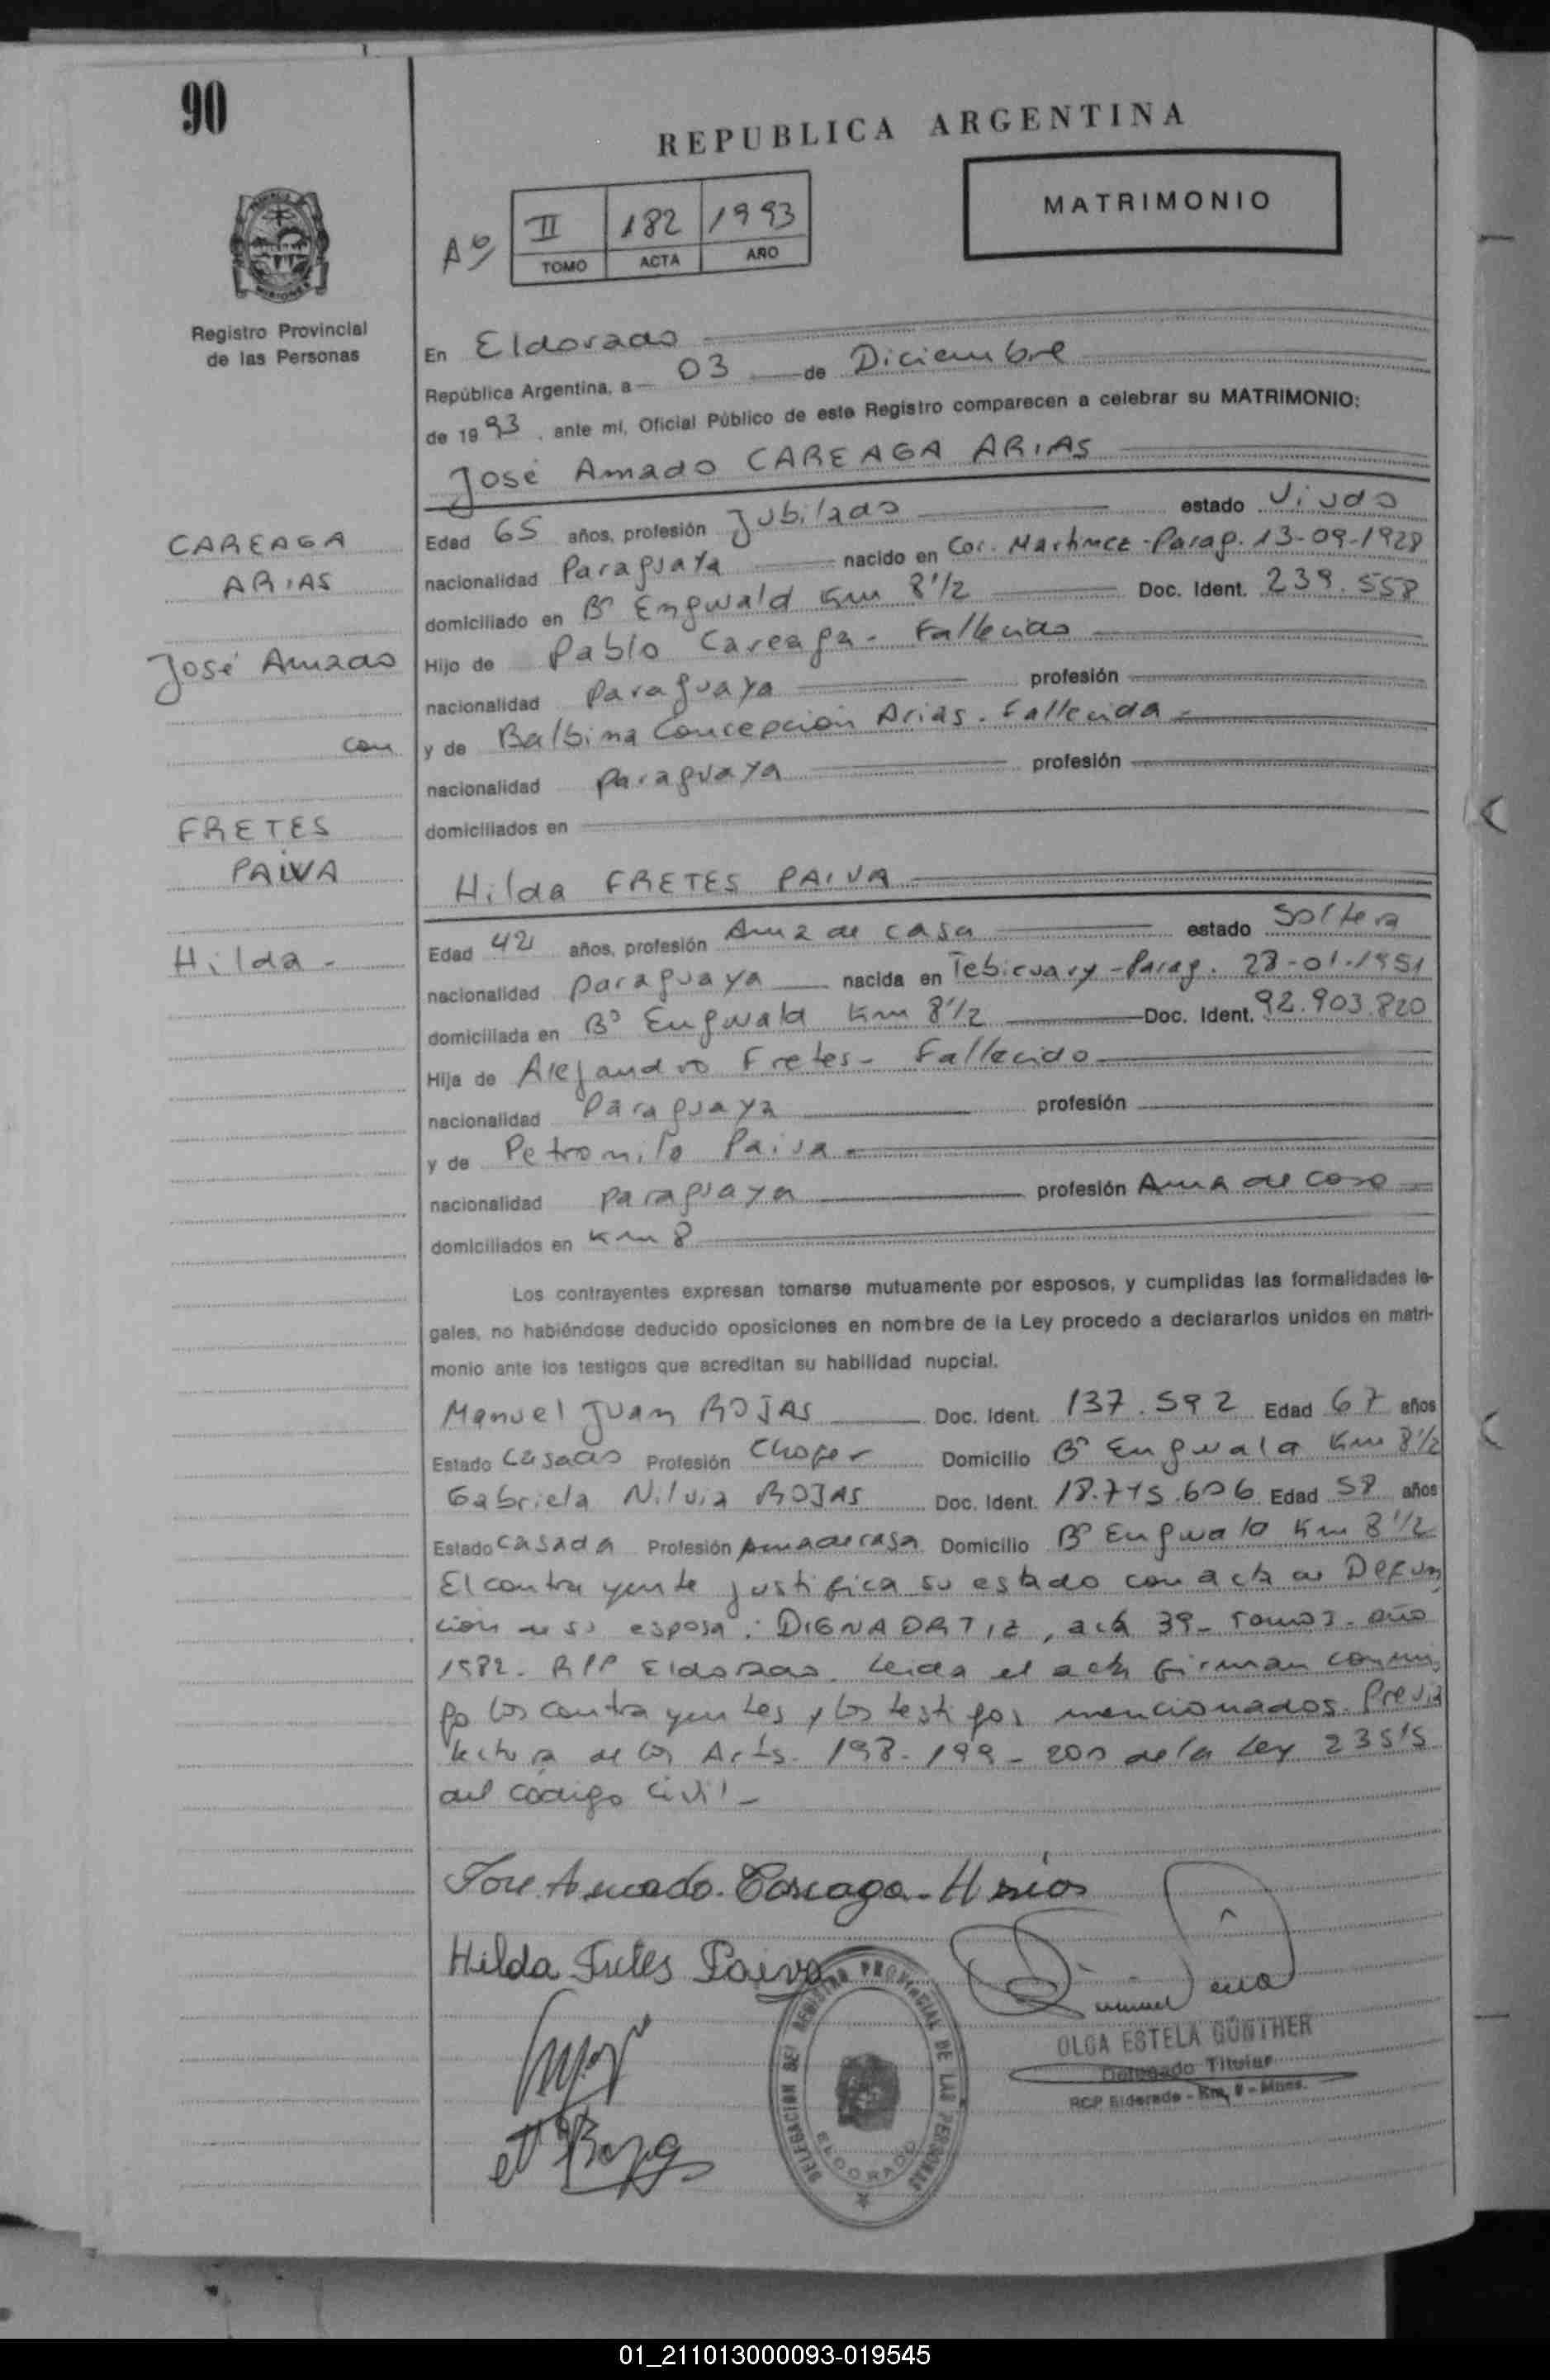 90
REPUBLICA ARGENTINA
MATRIMONIO
II 182 1993
TOMO ACTA AÑO
Registro Provincial
de las Personas
En Eldorado
República Argentina, a 03 de Diciembre
de 1993, ante mí, Oficial Público de este Registro comparecen a celebrar su MATRIMONIO:
José Amado CAREAGA ARIAS
CAREAGA
ARIAS
José Amado
con
FRETES
PAIVA
Hilda -
Edad 65 años, profesión Jubilado estado Viudo
nacionalidad Paraguaya nacido en Cor. Martinez - Parag. 13-09-1928
domiciliado en Bº Engwald Km 8 1/2 Doc. Ident. 239.558
Hijo de Pablo Careaga - Fallecido
nacionalidad Paraguaya profesión
y de Balbina Concepción Arias. Fallecida -
nacionalidad paraguaya profesión
domiciliados en
Hilda FRETES PAIVA
Edad 42 años, profesión Ama de casa estado Soltera
nacionalidad paraguaya nacida en Tebicuary - Parag. 28-01-1951
domiciliada en Bº Engwald Km 8 1/2 Doc. Ident. 92.903.820
Hija de Alejandro Fretes - Fallecido
nacionalidad Paraguaya profesión
y de Petronila Paiva
nacionalidad paraguaya profesión Ama de casa
domiciliados en Km 8
Los contrayentes expresan tomarse mutuamente por esposos, y cumplidas las formalidades le-
gales, no habiéndose deducido oposiciones en nombre de la Ley procedo a declararlos unidos en matri-
monio ante los testigos que acreditan su habilidad nupcial.
Manuel Juan ROJAS Doc. Ident. 137.592 Edad 67 años
Estado Casado Profesión Chofer Domicilio Bº Engwald Km 8 1/2
Gabriela Nilvia ROJAS Doc. Ident. 18.715.606 Edad 58 años
Estado Casada Profesión Ama de casa Domicilio Bº Engwald Km 8 1/2
El contrayente justifica su estado con acta de Defun
ción de su esposa: DIGNA ORTIZ, acta 39 - Tomo - año
1982. RPP Eldorado. Leida el acta firman conmi
go los contrayentes y los testigos mencionados. Previa
lectura de los Arts. 198 - 199 - 200 de la Ley 23515
del código civil -
Jose Amado Careaga Arias
Hilda Fretes Paiva
DELEGACION DEL REGISTRO PROVINCIAL DE LAS PERSONAS
ELDORADO
OLGA ESTELA GÜNTHER
Delegado Titular
RCP Eldorado - Km. 9 - Mnes.
01_211013000093-019545